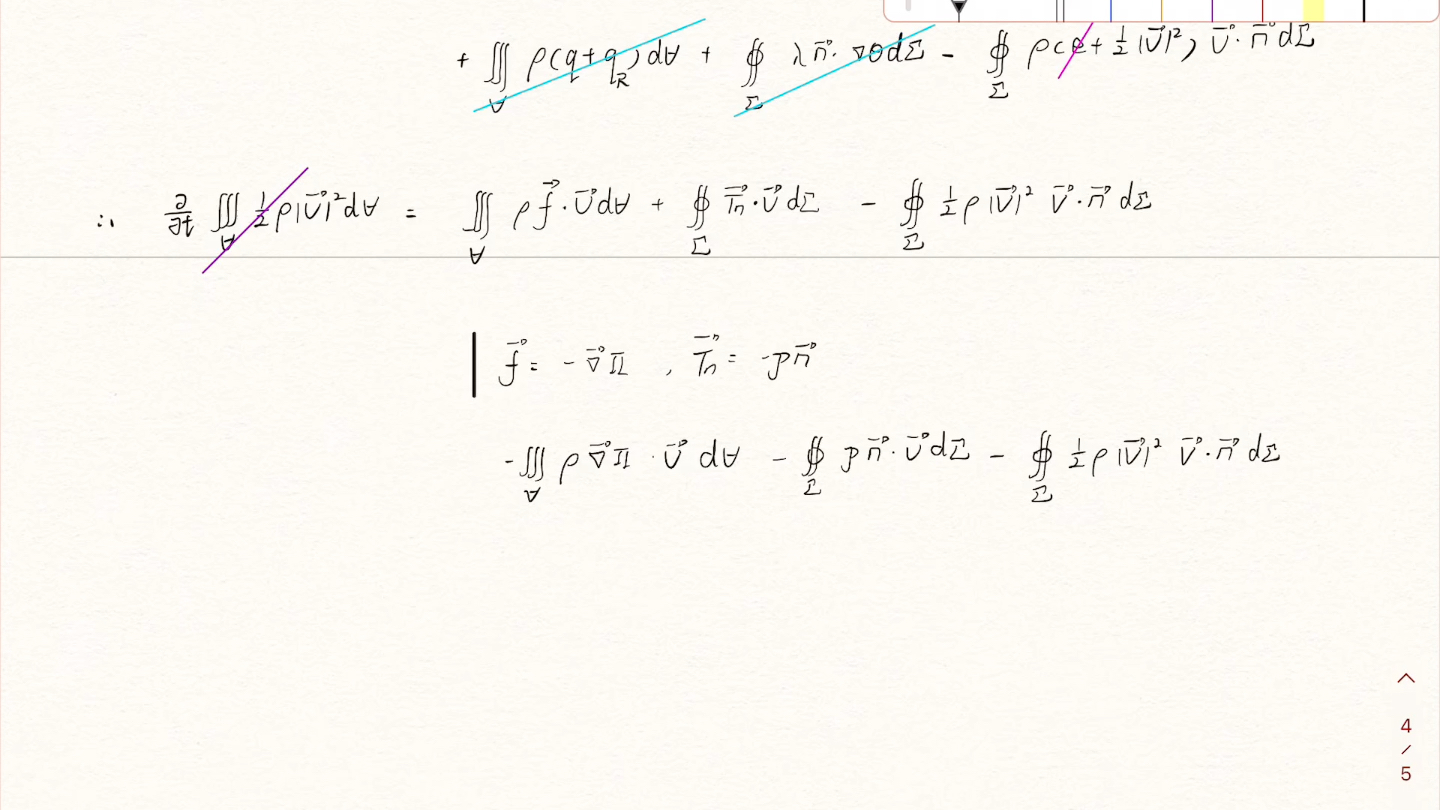 + ∭_V ρ(q+q_R)dV + ∯_Σ λ n⃗·∇θ dΣ − ∯_Σ ρ(e+½|v⃗|²) v⃗·n⃗ dΣ
∴ ∂/∂t ∭_V ½ρ|v⃗|²dV = ∭_V ρf⃗·v⃗dV + ∯_Σ T⃗n·v⃗dΣ − ∯_Σ ½ρ|v⃗|² v⃗·n⃗ dΣ
f⃗ = −∇⃗Π , T⃗n = −pn⃗
−∭_V ρ∇⃗Π·v⃗ dV − ∯_Σ pn⃗·v⃗dΣ − ∯_Σ ½ρ|v⃗|² v⃗·n⃗ dΣ
4
/
5